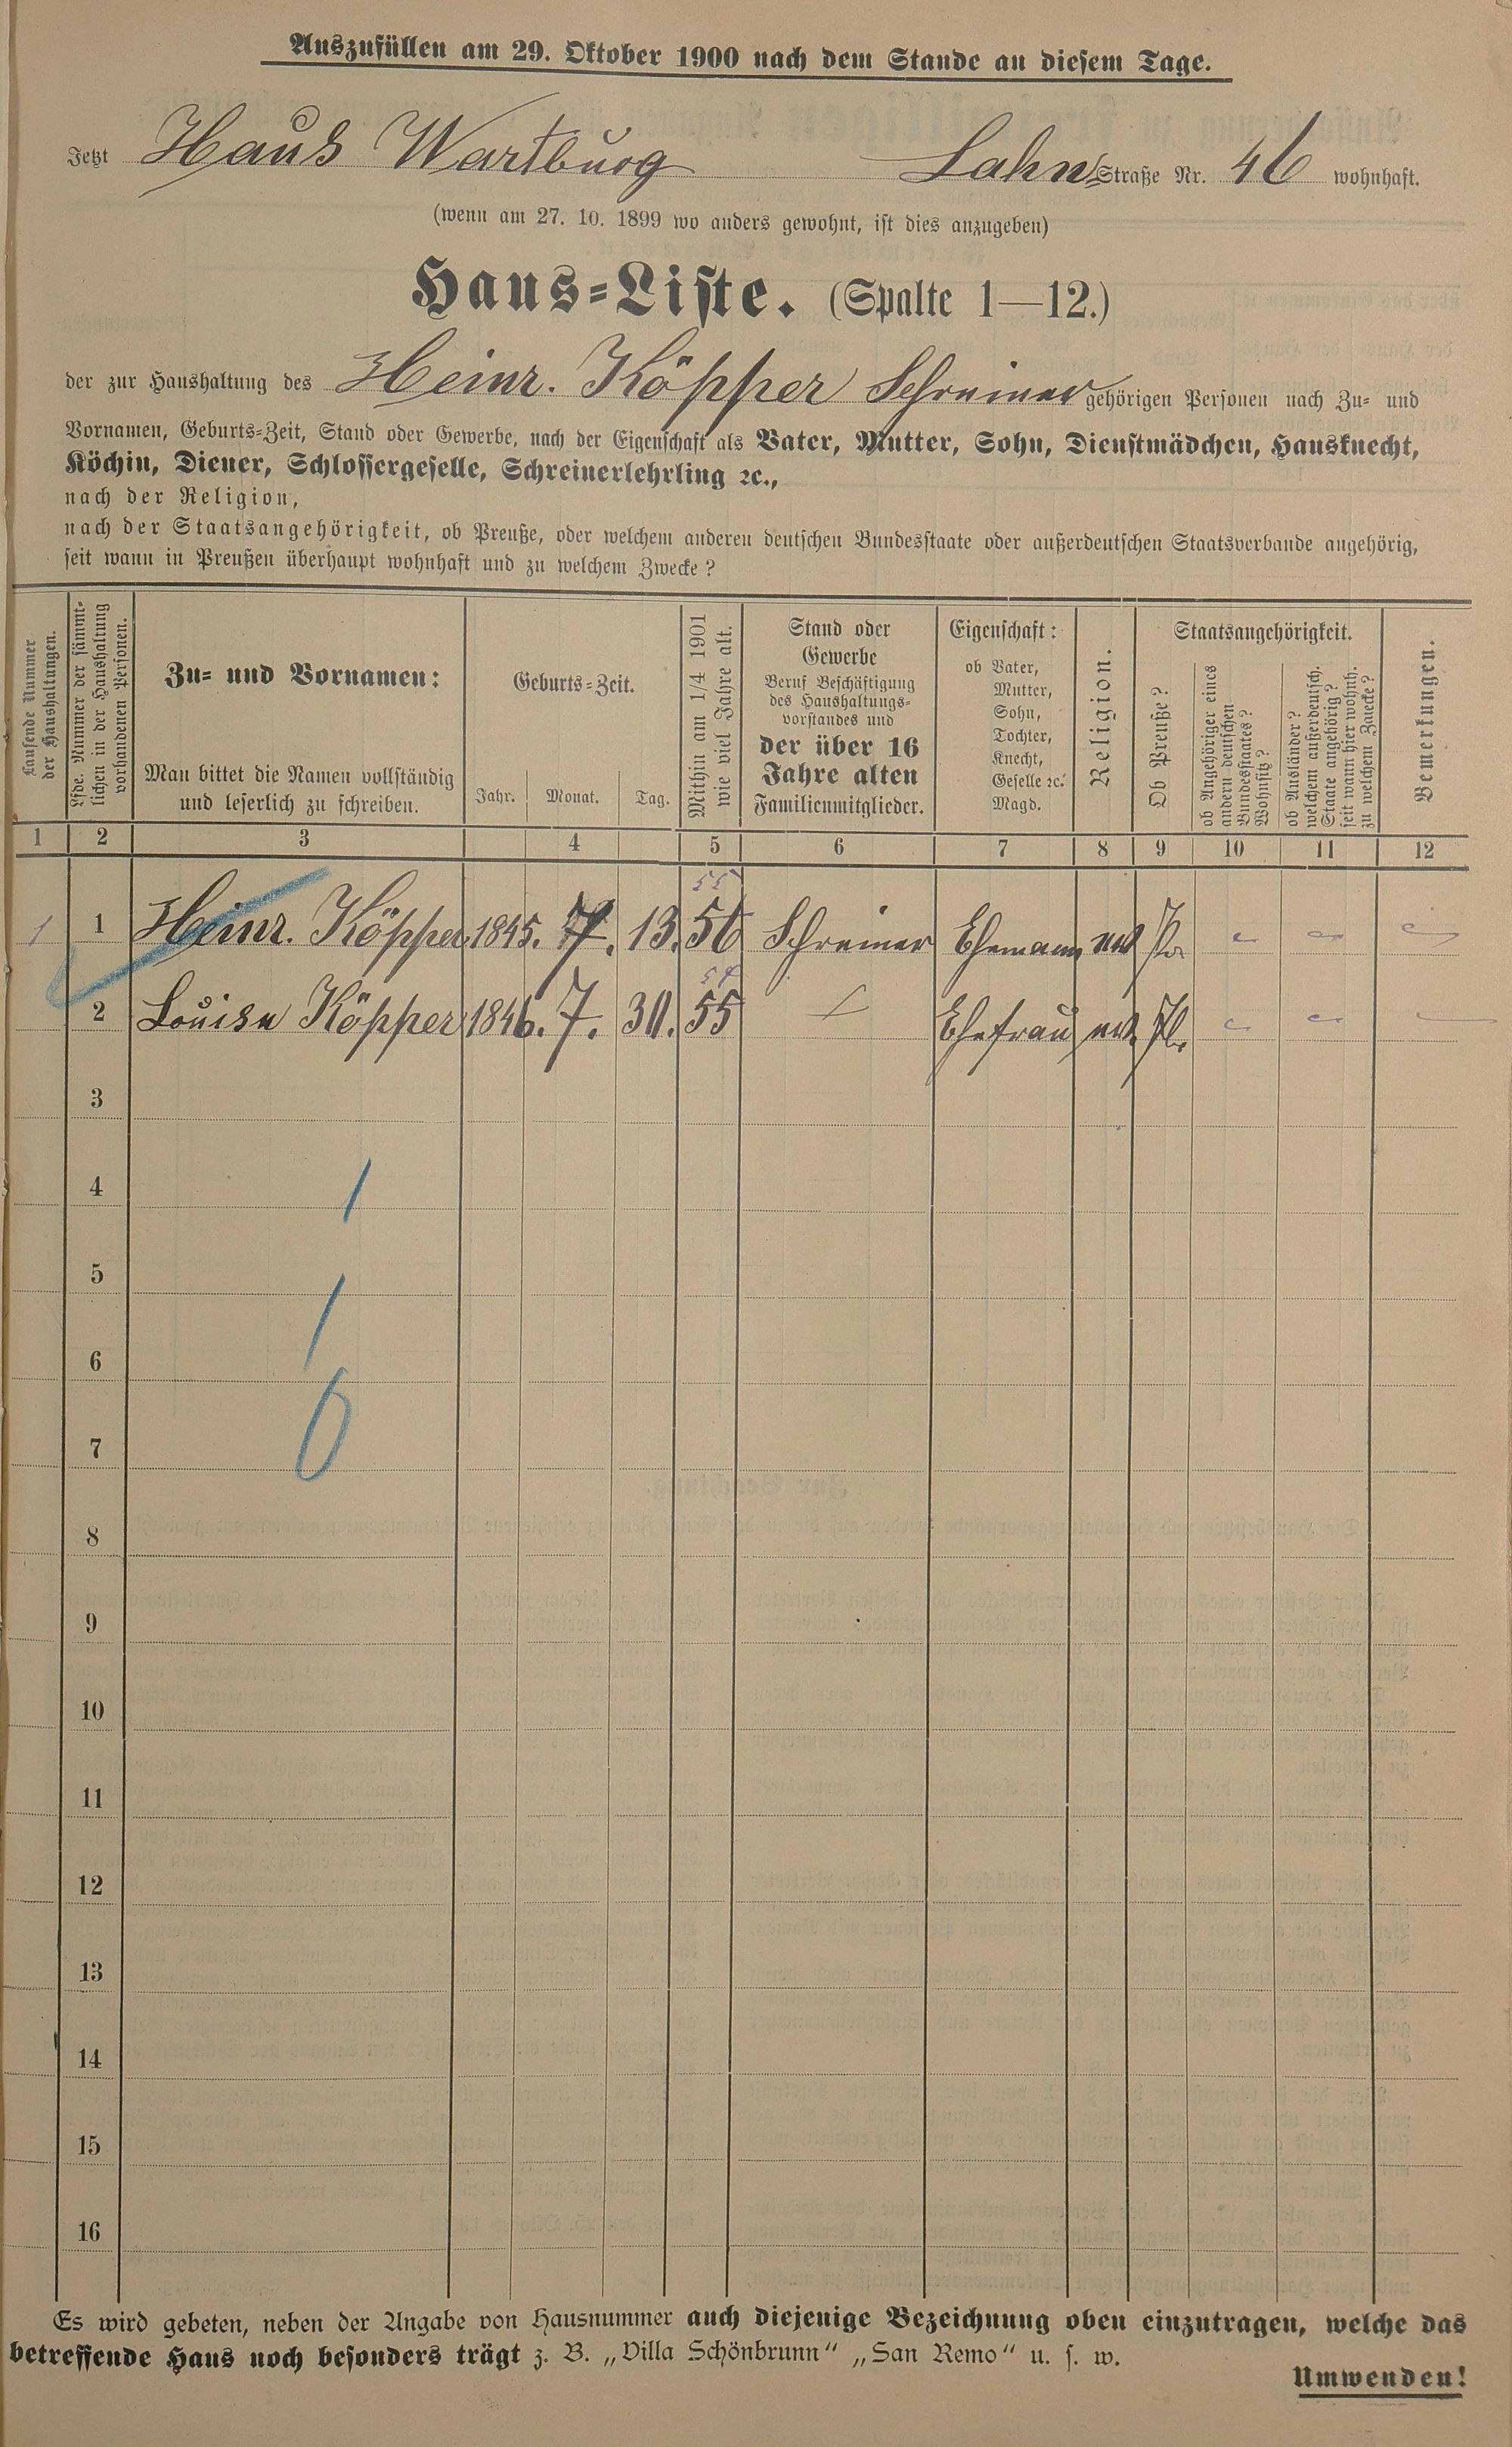 Auszufüllen am 29. Oktober 1900 nach dem Stande an diesem Tage.
Jetzt Haus Wartburg Lahn Straße Nr. 46 wohnhaft.
(wenn am 27. 10. 1899 wo anders gewohnt, ist dies anzugeben)
Haus-Liste. (Spalte 1—12.)
der zur Haushaltung des Heinr. Köpper Schreiner gehörigen Personen nach Zu- und
Vornamen, Geburts-Zeit, Stand oder Gewerbe, nach der Eigenschaft als Vater, Mutter, Sohn, Dienstmädchen, Hausknecht,
Köchin, Diener, Schlossergeselle, Schreinerlehrling ꝛc.,
nach der Religion,
nach der Staatsangehörigkeit, ob Preuße, oder welchem anderen deutschen Bundesstaate oder außerdeutschen Staatsverbande angehörig,
seit wann in Preußen überhaupt wohnhaft und zu welchem Zwecke?
Laufende Nummer
der Haushaltungen.
Lfde. Nummer der sämmt-
lichen in der Haushaltung
vorhandenen Personen.
Zu- und Vornamen:
Man bittet die Namen vollständig
und leserlich zu schreiben.
Geburts-Zeit.
Jahr. Monat. Tag.
Mithin am 1/4 1901
wie viel Jahre alt.
Stand oder
Gewerbe
Beruf Beschäftigung
des Haushaltungs-
vorstandes und
der über 16
Jahre alten
Familienmitglieder.
Eigenschaft:
ob Vater,
Mutter,
Sohn,
Tochter,
Knecht,
Geselle ꝛc.
Magd.
Religion.
Staatsangehörigkeit.
Ob Preuße?
ob Angehöriger eines
andern deutschen
Bundesstaates?
Wohnsitz?
ob Ausländer?
welchem außerdeutsch.
Staate angehörig?
seit wann hier wohnh.
zu welchem Zwecke?
Bemerkungen.
1 2 3 4 5 6 7 8 9 10 11 12
55
1 1 Heinr. Köpper 1845. 7. 13. 56 Schreiner Ehemann ev Pr.
54
2 Louise Köpper 1846. 7. 30. 55 Ehefrau ev. Pr.
3
4
1
5
1
6
0
7
8
9
10
11
12
13
14
15
16
Es wird gebeten, neben der Angabe von Hausnummer auch diejenige Bezeichnung oben einzutragen, welche das
betreffende Haus noch besonders trägt z. B. „Villa Schönbrunn“ „San Remo“ u. s. w.
Umwenden!